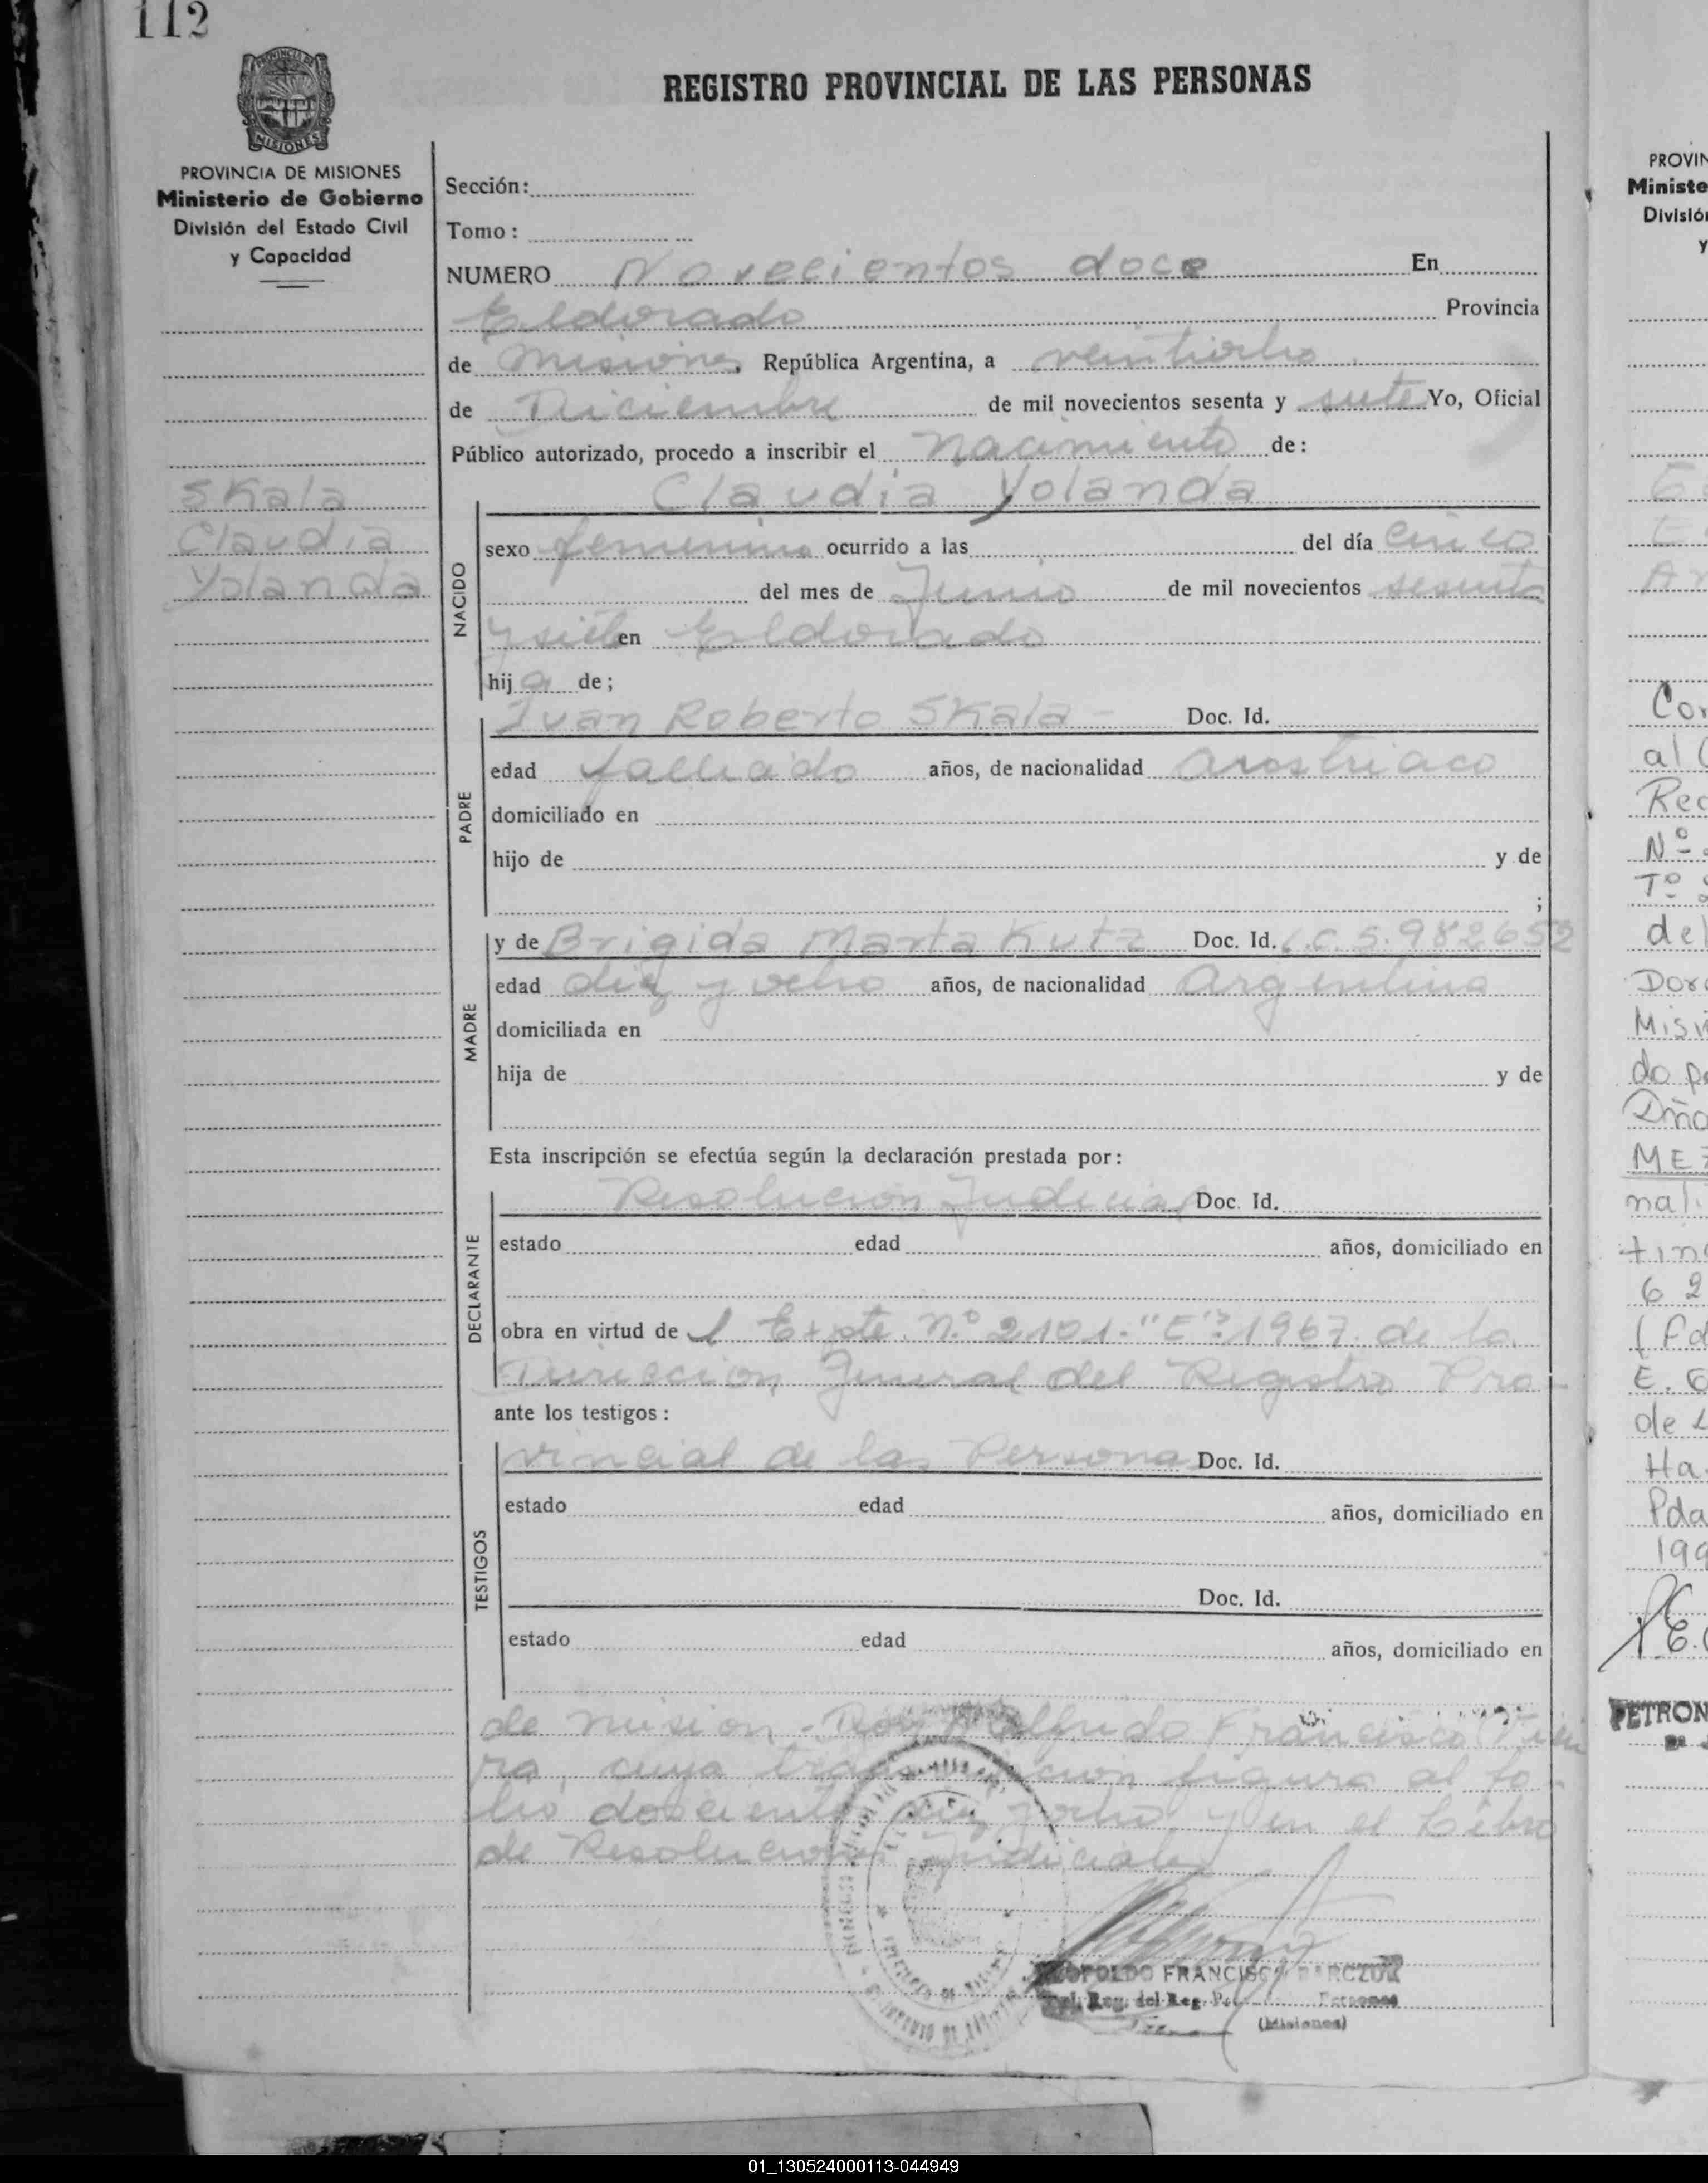 112
REGISTRO PROVINCIAL DE LAS PERSONAS
PROVINCIA DE MISIONES
Ministerio de Gobierno
División del Estado Civil
y Capacidad
Skala
Claudia
Yolanda
Sección:
Tomo:
NUMERO Novecientos doce En
Eldorado Provincia
de Misiones, República Argentina, a veintiocho
de Diciembre de mil novecientos sesenta y siete Yo, Oficial
Público autorizado, procedo a inscribir el nacimiento de:
Claudia Yolanda
NACIDO
sexo femenino ocurrido a las del día cinco
del mes de Junio de mil novecientos sesenta
y siete en Eldorado
hija de;
PADRE
Juan Roberto Skala - Doc. Id.
edad fallecido años, de nacionalidad
domiciliado en
hijo de y de
;
MADRE
y de Brigida Marta Kutz Doc. Id. C.C. 5.982652
edad diez y ocho años, de nacionalidad Argentina
domiciliada en
hija de y de
Esta inscripción se efectúa según la declaración prestada por:
DECLARANTE
Resolucion Judicial Doc. Id.
estado edad años, domiciliado en
obra en virtud del Expte. Nº 2101-"E"-1967. de la
Direccion General del Registro Pro-
ante los testigos:
TESTIGOS
vincial de las Personas Doc. Id.
estado edad años, domiciliado en
Doc. Id.
estado edad años, domiciliado en
de mision - Alfredo Francisco
ra, cuya figura al fo-
lio doscientos diez y ocho y en el Libro
de Resoluciones Judiciales
LEOPOLDO FRANCISCO BARCZUK
del Reg. Personas
(Misiones)
PROVIN
Ministe
Divisió
y
Co
al
Rec
Nº
Tº
del
Dor
Misi
do p
Dña
MEZ
nali
tin
6 2
(Fd
E. G
de L
Ha
Pda
199
PETRON
01_130524000113-044949